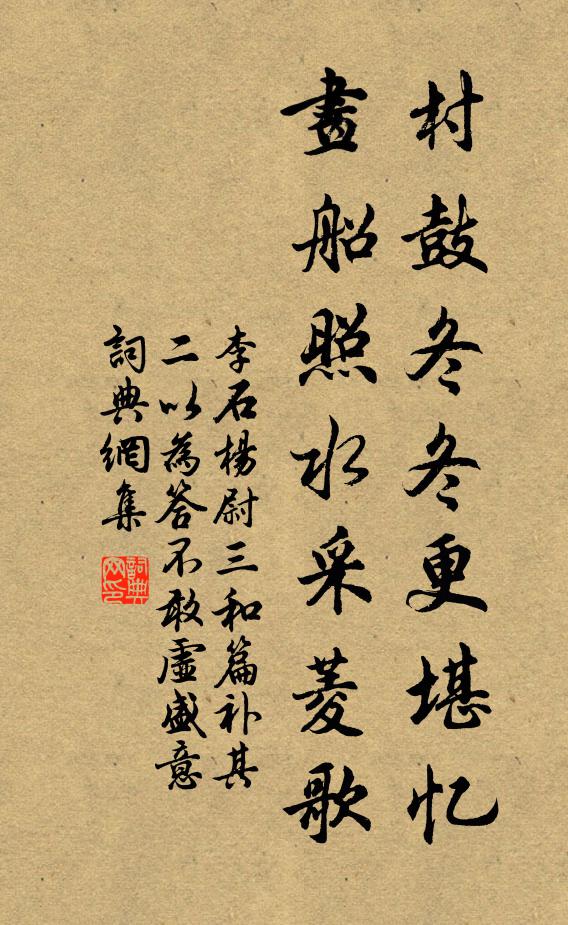 村鼓冬冬更堪忆
畫船照水采菱歌
李石楊尉三和篇补其
二以為答不敢虛盛意
詞典網集
詞典网印